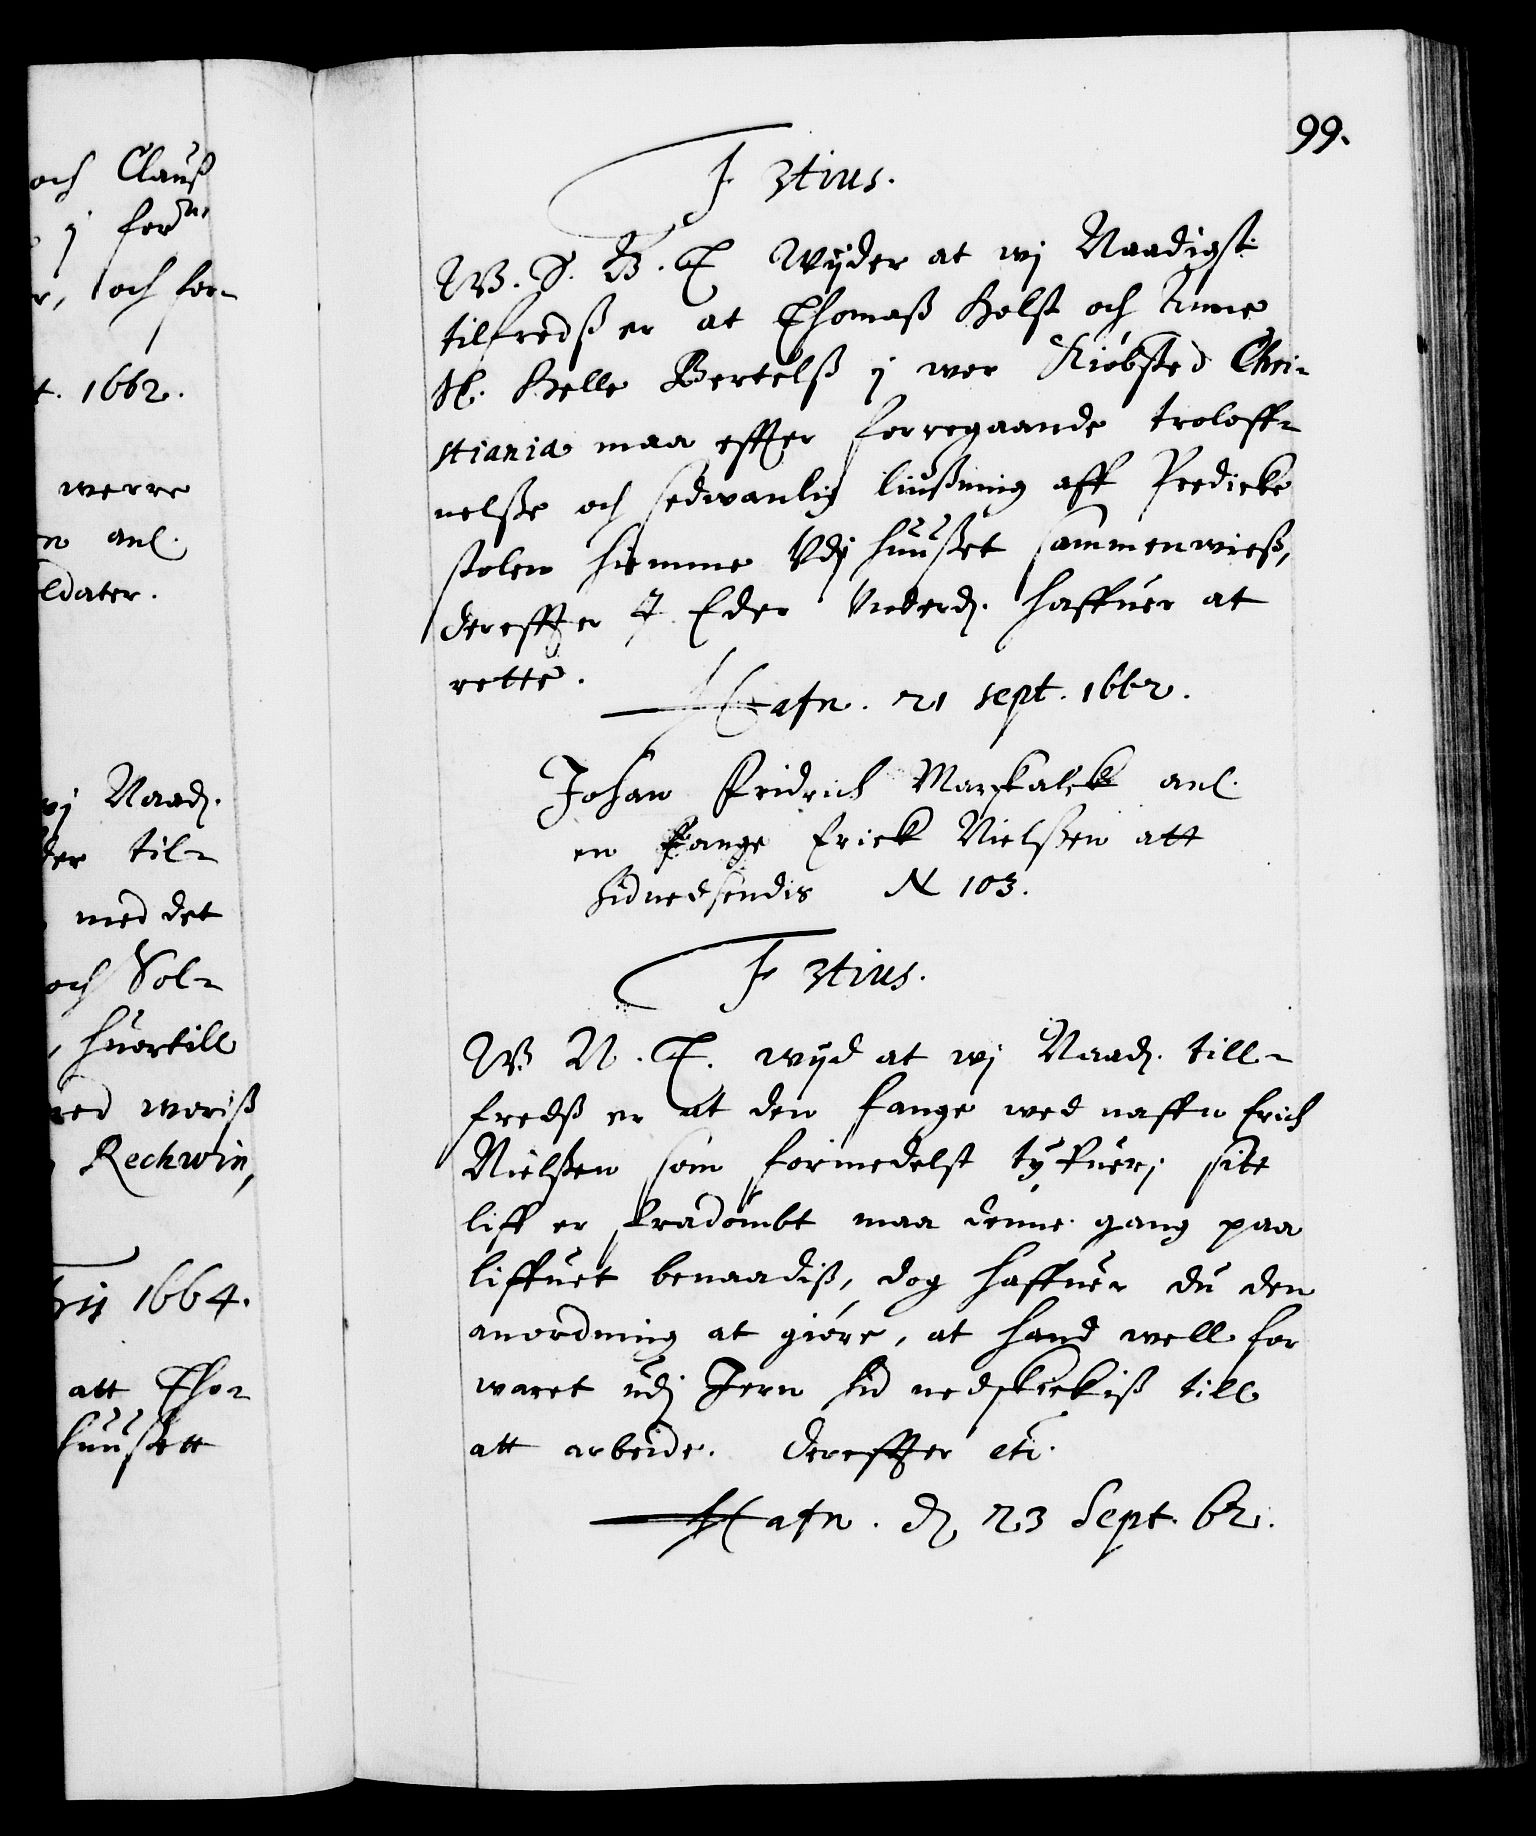 och Clauß
j forne
r, och for-
t. 1662.
werre
n anl.
ldater.
wj Naad.
der til-
med det
och Sol-
, huortill
med woriß
Rechwin,
brij 1664.
att Tho-
huußett
99.
F 3tius.
W. S. B. T Wijder at wj Naadigst
tilfredß er at Thomaß Holst och Anne
Sl. Helle Bertelß j wor Kiöbsted Chri-
stiania maa effter forregaande troloff-
nelße och sedwanlig liußning aff Predicke
stolen hiemme Vdj huußet sammenwieß,
dereffter I Eder Vnderd. haffuer at
rette.
Hafn. 21 sept. 1662.
Johan Fridrich Marskalck anl.
en Fange Erick Nielßen att
hidnedsendis N 103.
F 3tius.
W. N. T. wijd at wj Naad. till-
fredß er at den fange wed naffn Erich
Nielßen som formedelst tyfuerj sitt
liff er fradömbt maa denne gang paa
liffuet benaadiß, dog haffuer du den
anordning at giöre, at hand well for
waret udj Jern hid nedskickiß till
att arbeide. dereffter etc.
Hafn. d. 23 Sept. 62.